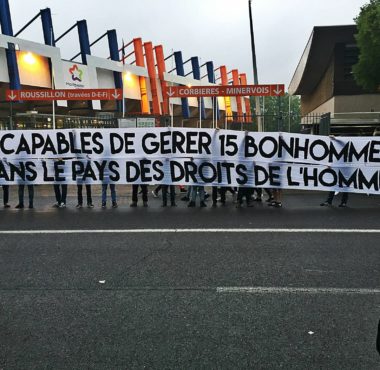 ROUSSILLON (travées D-E-F)
CORBIERES - MINERVOIS
CAPABLES DE GERER 15 BONHOMME
ANS LE PAYS DES DROITS DE L'HOMM